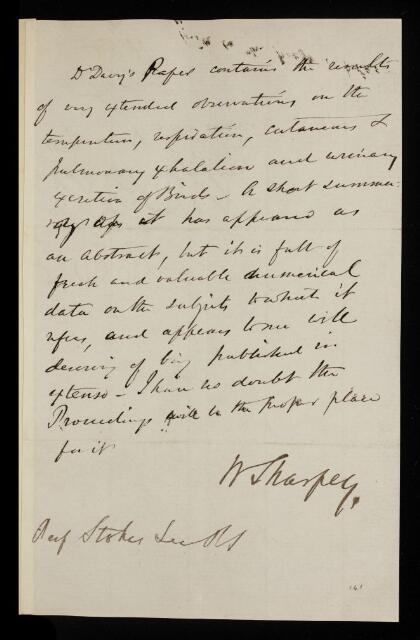 Dr Davy's Paper contains the results
of very extended observations on the
temperature, respiration, cutaneous &
pulmonary exhalation and urinary
excretion of Birds – A short summa-
ry of it has appeared as
an abstract, but it is full of
fresh and valuable numerical
data on the subjects to which it
refers, and appears to me well
deserving of being published in
extenso – I have no doubt the
Proceedings will be the proper place
for it
W Sharpey.
Prof Stokes Sec RS